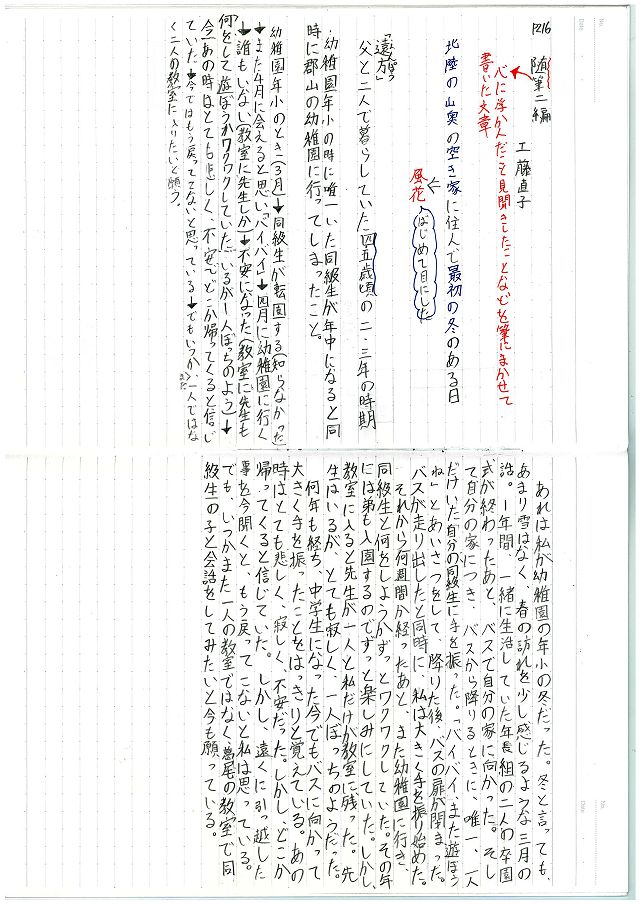 P216
随筆二編
工藤直子
心に浮かんだこと、見聞きしたことなどを筆にまかせて
書いた文章
北陸の山奥の空き家に住んで最初の冬のある日
風花
はじめて目にした
「遠方」
父と二人で暮らしていた四五歳頃の二、三年の時期
・幼稚園年小の時に唯一いた同級生が年中になると同
時に郡山の幼稚園に行ってしまったこと。
幼稚園年小のとき(3月)→同級生が転園する(知らなかった
→また4月に会えると思い「バイバイ」→四月に幼稚園に行く
→誰もいない(教室に先生しか)→不安になった(教室に先生も
何をして遊ぼうかワクワクしていた)いるが一人ぼっちのよう)→
今「あの時はとても悲しく、不安でどこか帰ってくると信じ
ていた。→今ではもう戻ってこないと思っている→でもいつか、一人ではな
く二人の教室に入りたいと願う。
また
あれは私が幼稚園の年小の冬だった。冬と言っても、
あまり雪はなく、春の訪れを少し感じるような三月の
話。1年間、一緒に生活していた年長組の二人の卒園
式が終わったあと、バスで自分の家に向かった。そし
て自分の家につき、バスから降りるときに、唯一、一人
だけいた自分の同級生に手を振った。「バイバイ、また遊ぼう
ね」とあいさつをして、降りた後、バスの扉が閉まった。
バスが走り出したと同時に、私は大きく手を振り始めた。
それから何週間か経ったあと、また幼稚園に行き、
同級生と何をしようかずっとワクワクしていた。その年
には弟も入園するのでずっと楽しみにしていた。しかし、
教室に入ると先生が一人と私だけが教室に残った。先
生はいるが、とても寂しく、一人ぼっちのようだった。
何年も経ち、中学生になった今でもバスに向かって
大きく手を振ったことをはっきりと覚えている。あの
時はとても悲しく、寂しく、不安だった。しかし、どこか
帰ってくると信じていた。しかし、遠くに引っ越した
事を今聞くと、もう戻ってこないと私は思っている。
でも、いつかまた一人の教室ではなく、葛尾の教室で同
級生の子と会話をしてみたいと今も願っている。